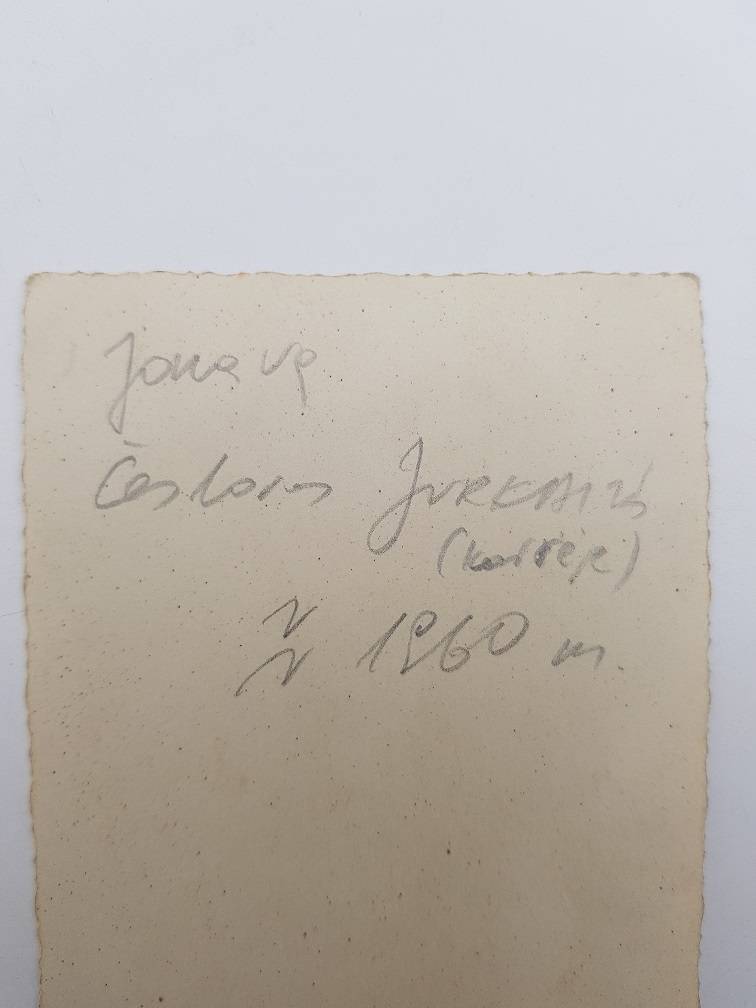 Jonava
Česlovas JURKAITIS
(kairėje)
≈ 1960 m.